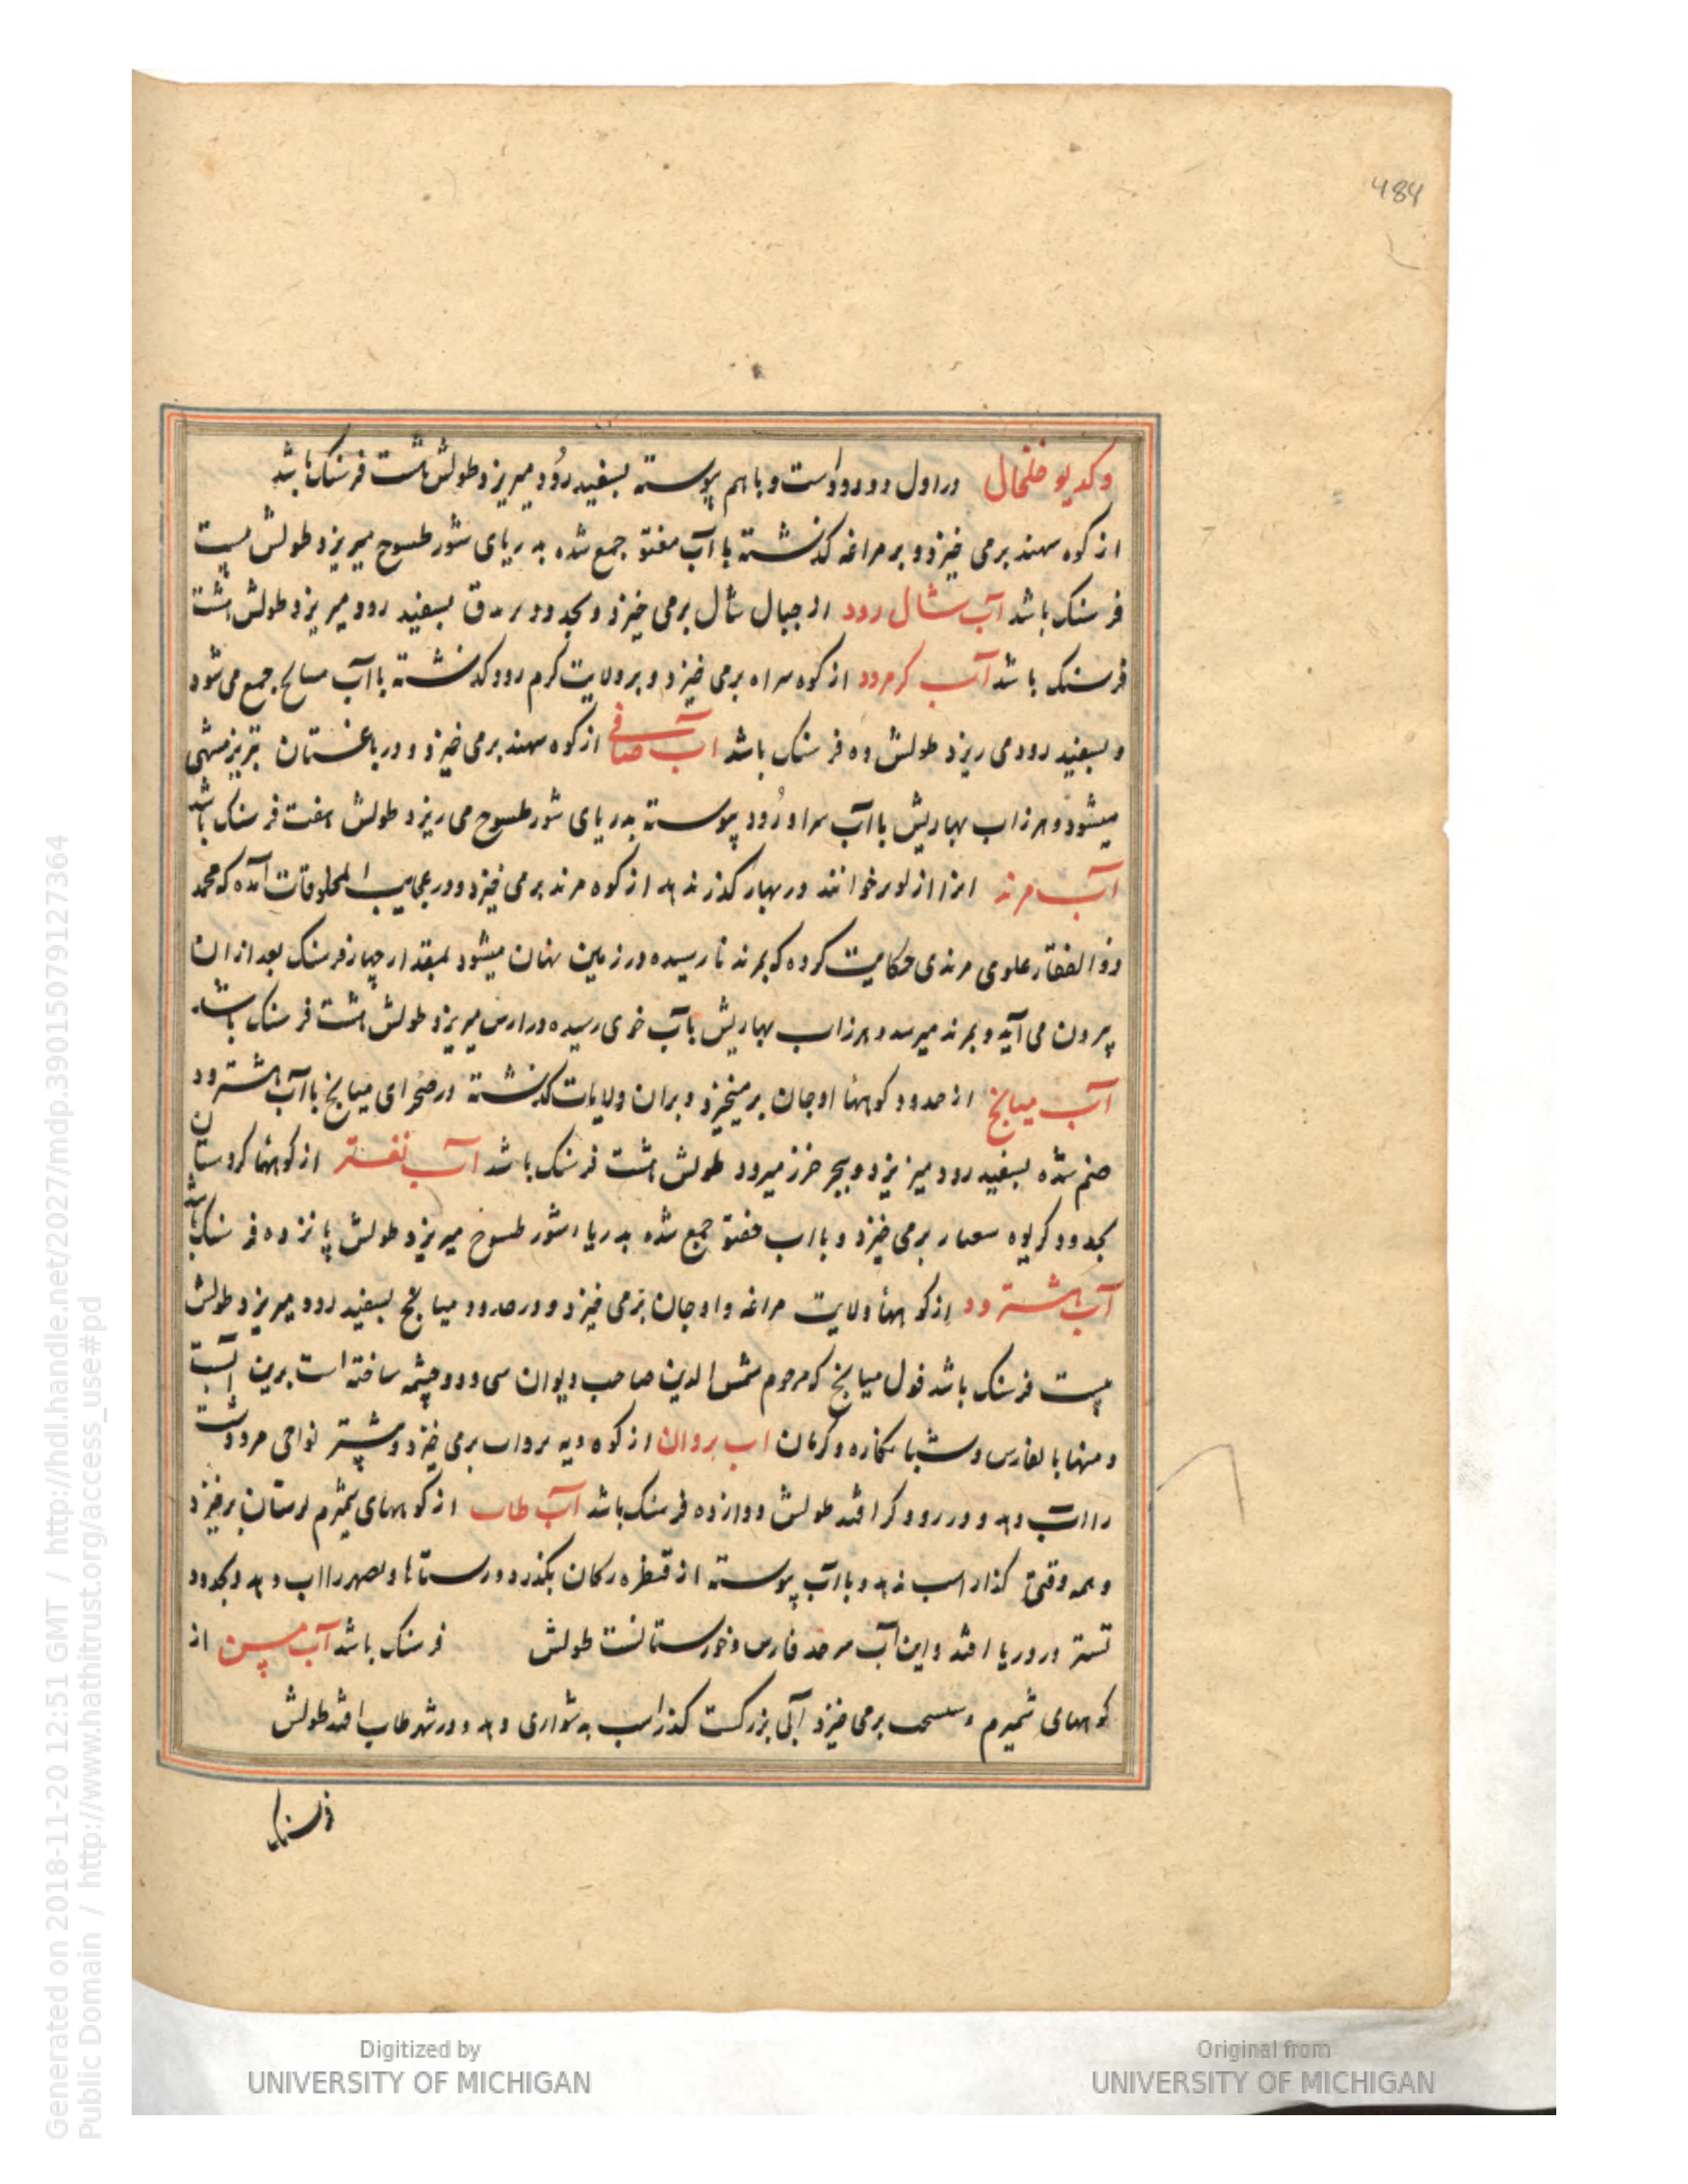 484
وکدیو خلخال در اول دو رود است و با هم پیوسته بسفید رُود میریزد طولش هشت فرسنک باشد
از کوه سهند برمی خیزد و بر مراغه کذشته با آب جمع شده بدریای شور طسوج میریزد طولش بیست
فرسنک باشد آب شال رود از جبال شال برمی خیزد و بحدود بسفید رود میریزد طولش هشت
فرسنک باشد آب کرمرود از کوه سراه برمی خیزد و بر ولایت کرم رود کذشته با آب میانج جمع می شود
و بسفید رود می ریزد طولش ده فرسنک باشد اب صافی از کوه سهند برمی خیزد و در باغستان تبریز منتهی
میشود و هرزاب بهاریش با آب سراو رُود پیوسته بدریای شور طسوج می ریزد طولش هفت فرسنک باشد
آب مرند انرا از لوبر خوانند در بهار کذر ندهد از کوه مرند برمی خیزد و در عجایب المخلوقات آمده که محمد
ذو الفقار علوی مرندی حکایت کرده که بمرند نارسیده در زمین نهان میشود بمقدار چهار فرسنک بعد از ان
بیرون می آید و بمرند میرسد و هرزاب بهاریش بآب خوی رسیده در ارس میریزد طولش هشت فرسنک باشد
آب میانج از حدود کوهها اوجان برمیخیزد و بران ولایات کذشته در صحرای میانج با آب هشترود
ضم شده بسفید رود میریزد و ببحر خزر میرود طولش هشت فرسنک باشد آب نغستر از کوهها کردستان
بحدود کریوه برمی خیزد و بااب جمع شده بدریا شور طسوج میریزد طولش پانزده فرسنک باشد
آب هشترود از کوهها ولایت مراغه و اوجان برمی خیزد و در حدود میانج بسفید رود میریزد طولش
بیست فرسنک باشد فول میانج که مرحوم شمس الدین صاحب دیوان سی و دو چشمه ساخته است برین آبست
و منها با لفارس و شبانکاره و کرمان اب بروان از کوه دیه برواب برمی خیزد و بیشتر نواحی مرودشت
را اب دهد و در رود کر افتد طولش دوازده فرسنک باشد آب طاب از کوههای سمیرم لرستان برخیزد
و همه وقتی کذار اسب ندهد و با آب پیوسته از قنطره رکان بکذرد و رستاها را اب دهد و بحدود
تستر در دریا افتد و این آب سرحد فارس و خوزستانست طولش فرسنک باشد آب مسن از
کوههای سمیرم و برمی خیزد آبی بزرکست کذر اسب بدشواری دهد و در شهر طاب افتد طولش
فرسنک
Generated on 2018-11-20 12:51 GMT / http://hdl.handle.net/2027/mdp.39015079127364
Public Domain / http://www.hathitrust.org/access_use#pd
Digitized by
UNIVERSITY OF MICHIGAN
Original from
UNIVERSITY OF MICHIGAN